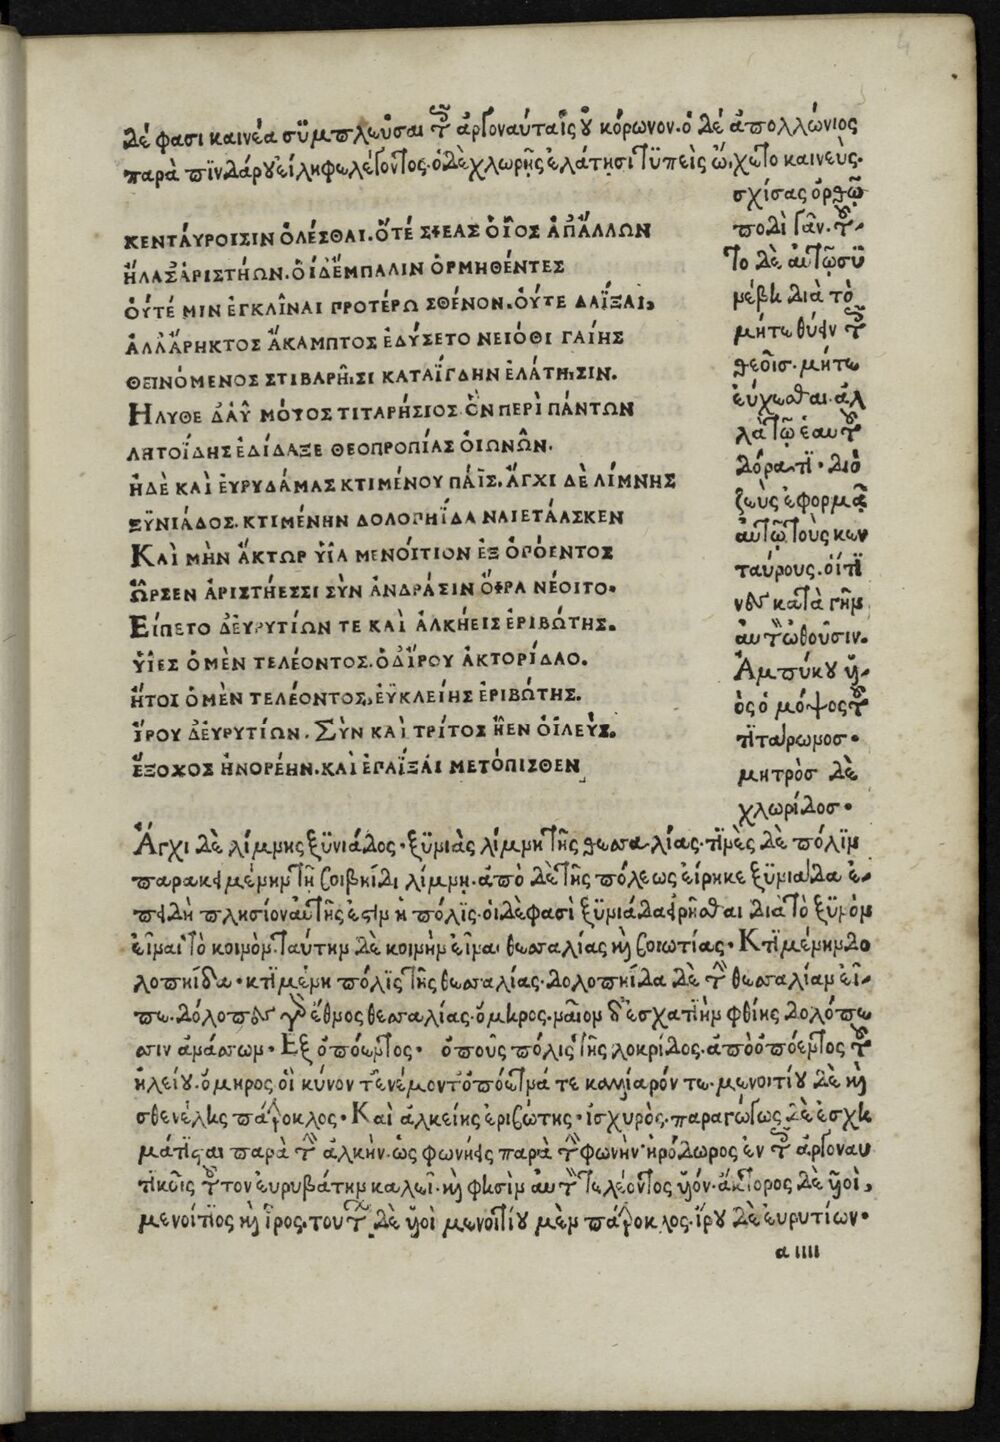 δέ φασι καινέα συμπλεῦσαι τοῖς ἀργοναύταις οὐ κόρωνον. ὁ δέ ἀπολλώνιος
παρὰ πινδάρου εἴληφε λέγοντος. ὁ δὲ χλωρῇς ἐλάτησι τυπεὶς ᾤχετο καινεὺς.
ΚΕΝΤΑΎΡΟΙΣΙΝ ὈΛΈΣΘΑΙ. ὍΤΕ ΣΦΕΑΣ ΟἾΟΣ ἈΠ᾽ ἌΛΛΩΝ
ἬΛΑΣ᾽ ἈΡΙΣΤΉΩΝ. ΟἹ Δ᾽ ἜΜΠΑΛΙΝ ὉΡΜΗΘΈΝΤΕΣ
ΟΎΤΕ ΜΙΝ ἘΓΚΛΙ͂ΝΑΙ ΠΡΟΤΈΡΩ ΣΘΈΝΟΝ. ΟΎΤΕ ΔΑΪ́ΞΑΙ,
ἈΛΛ᾽ ἌΡΗΚΤΟΣ ἌΚΑΜΠΤΟΣ ἘΔΎΣΕΤΟ ΝΕΙΌΘΙ ΓΑΊΗΣ
ΘΕΙΝΌΜΕΝΟΣ ΣΤΙΒΑΡΗ͂ΙΣΙ ΚΑΤΑΪ́ΓΔΗΝ ἘΛΆΤΗΙΣΙΝ.
ἬΛΥΘΕ Δ᾽ ΑΥ͂ ΜΌΨΟΣ ΤΙΤΑΡΉΣΙΟΣ. ὋΝ ΠΕΡῚ ΠΆΝΤΩΝ
ΛΗΤΟΪ́ΔΗΣ ἘΔΊΔΑΞΕ ΘΕΟΠΡΟΠΊΑΣ ΟἸΩΝΩ͂Ν.
ἨΔῈ ΚΑῚ ΕΥΡΥΔΆΜΑΣ ΚΤΙΜΈΝΟΥ ΠΆΙΣ. ἌΓΧΙ ΔῈ ΛΊΜΝΗΣ
ΞΥΝΙΆΔΟΣ. ΚΤΙΜΈΝΗΝ ΔΟΛΟΠΗΪ́ΔΑ ΝΑΙΕΤΆΑΣΚΕΝ
ΚΑῚ ΜῊΝ ἌΚΤΩΡ ΥἿΑ ΜΕΝΟΊΤΙΟΝ ἘΞ ὈΠΌΕΝΤΟΣ
ὮΡΣΕΝ ἈΡΙΣΤΉΕΣΣΙ ΣῪΝ ἈΝΔΡΆΣΙΝ ὌΦΡΑ ΝΈΟΙΤΟ.
ΕἽΠΕΤΟ Δ᾽ ΕΥΡΥΤΊΩΝ ΤΕ ΚΑῚ ἈΛΚΉΕΙΣ ἘΡΙΒΏΤΗΣ.
ΥἿΕΣ Ὁ ΜῈΝ ΤΕΛΈΟΝΤΟΣ. Ὁ Δ᾽ ἼΡΟΥ ἈΚΤΟΡΊΔΑΟ.
ἬΤΟΙ Ὁ ΜῈΝ ΤΕΛΈΟΝΤΟΣ, ἘΥΚΛΕΙΉΣ ἘΡΙΒΏΤΗΣ.
ἼΡΟΥ Δ᾽ ΕΥΡΥΤΊΩΝ. ΣῪΝ ΚΑῚ ΤΡΊΤΟΣ ἮΕΝ ὈΪΛΕῪΣ.
ἜΞΟΧΟΣ ἨΝΟΡΈΗΝ. ΚΑῚ ἘΠΑΪ͂ΞΑΙ ΜΕΤΌΠΙΣΘΕΝ
σχίσας ὀρθῷ
ποδὶ γᾶν. τοῦ-
το δὲ αὐτῷ συ
νέβη διὰ τὸ
μήτε θύειν τοῖς
θεοῖς. μήτε
εὔχεσθαι. ἀλ
λὰ τῷ ἑαυτοῦ
δόρατι. διὸ
ζεὺς ἐφορμᾷ
αὐτῷ τοὺς κεν
ταύρους. οἵτι
νες κατὰ γῆς
αὐτὸν ὠθοῦσιν.
Ἀμπύκου υἱ-
ὸς ὁ μόψος τοῦ
τιταίρωνος.
μητρὸς δὲ
χλωρίδος.
Ἄγχι δὲ λίμνης ξυνιάδος. ξυνιὰς λίμνη τῆς θεσσαλίας. τινὲς δὲ πόλιν
παρακειμένην τῇ βοιβηίδι λίμνῃ. ἀπὸ δὲ τῆς πόλεως εἴρηκε ξυνιάδα ἐ-
πειδὴ πλησίον αὐτῆς ἐστιν ἡ πόλις. οἱ δέ φασὶ ξυνιάδα εἰρῆσθαι διὰ τὸ ξυνὸν
εἶναι τὸ κοινὸν. ταύτην δὲ κοινὴν εἶναι θεσσαλίας καὶ βοιωτίας. Κτιμένην δο
λοπηίδα. κτιμένη πόλις τῆς θεσσαλίας. δολοπηίδα δὲ τὴν θεσσαλίαν εἶ-
πε. δόλοπες γὰρ ἔθνος θεσσαλίας. ὅμηρος. ναῖον δ᾽ ἐσχατιὴν φθίης δολόπε
σσιν ἀνάσσων. Ἐξ ὀπόεντος. ὀποῦς πόλις τῆς λοκρίδος. ἀπὸ ὀπόεντος τοῦ
ἠλείου. ὅμηρος, οἳ κῦνον τ᾽ ἐνέμοντ᾽ ὀπόεντά τε καλλίαρόν τε. μενοιτίου δὲ καὶ
σθενέλης πάτροκλος. Καὶ ἀλκείης ἐριβώτης. ἰσχυρὸς. παραγώγως δὲ ἐσχη
μάτισται παρὰ τὴν ἀλκήν. ὡς φωνήεις παρὰ τὴν φωνήν. ἡρόδωρος ἐν τοῖς ἀργοναυ
τικοῖς τοῦτον εὐρυβάτην καλεῖ. καὶ φησὶν αὐτὸν τελέοντος υἱόν. ἄκτορος δὲ υἱοὶ,
μενοίτιος καὶ ἶρος. τούτων δὲ υἱοὶ μενοιτίου μὲν πάτροκλος. ἴρου δὲ εὐρυτίων.
α ιιιι
4